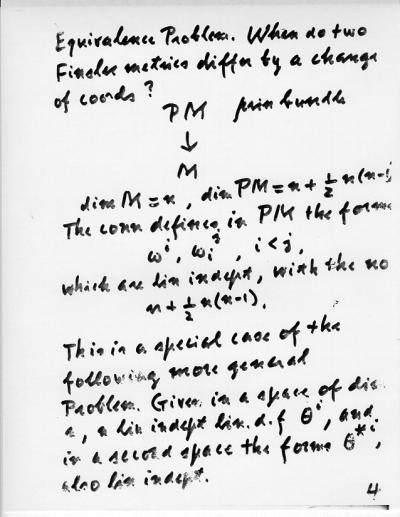 Equivalence Problem. When do two
Finsler metrics differ by a change
of coords?
PM prin bundle
↓
M
dim M = n, dim PM = n + ½ n(n-1)
The conn defines in PM the forms
ωⁱ, ωᵢʲ, i < j,
which are lin indept, with the no
n + ½ n(n-1).
This is a special case of the
following more general
Problem. Given in a space of dim
n, n lin indept lin. d. f θⁱ, and
in a second space the forms θ*ⁱ,
also lin indept.
4